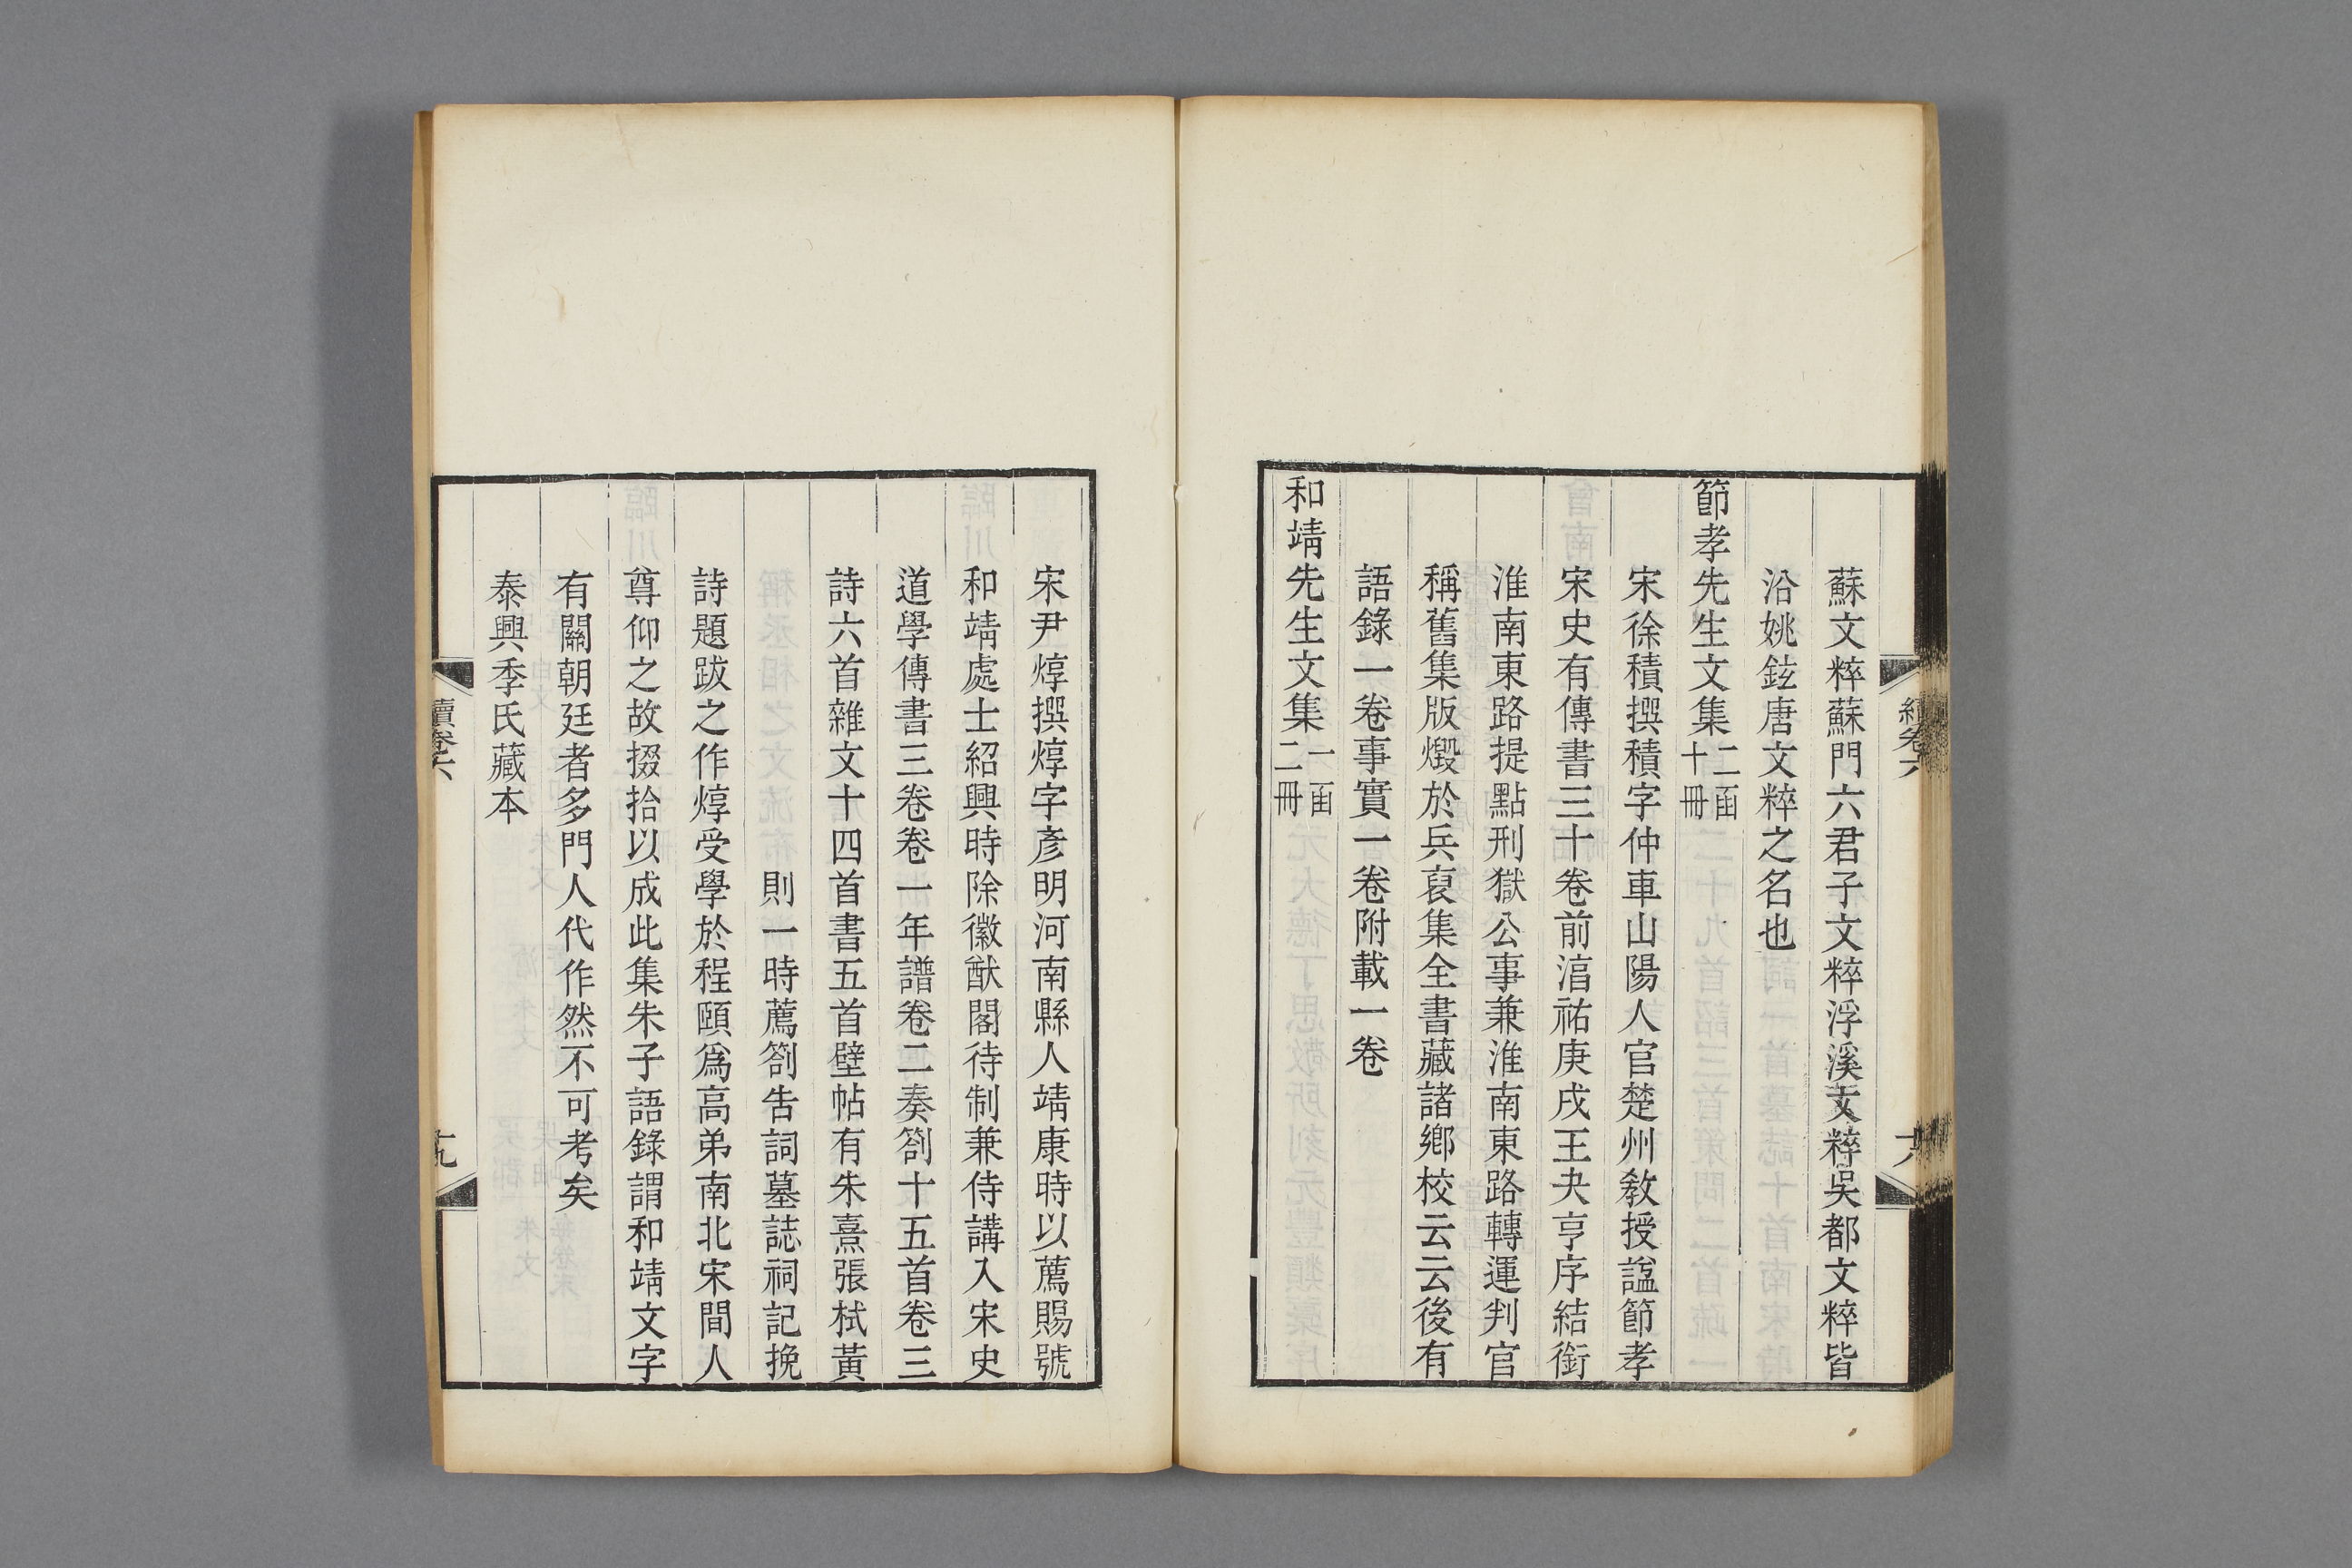 蘇文粹蘇門六君子文粹浮溪文粹吳都文粹皆
沿姚鉉唐文粹之名也
節孝先生文集二函十冊
宋徐積撰積字仲車山陽人官楚州敎授諡節孝
宋史有傳書三十卷前湻祐庚戌王夬亨序結銜
淮南東路提點刑獄公事兼淮南東路轉運判官
稱舊集版燬於兵裒集全書藏諸鄉校云云後有
語錄一卷事實一卷附載一卷
和靖先生文集一函二冊
續卷六
宋尹焞撰焞字彥明河南縣人靖康時以薦賜號
和靖處士紹興時除徽猷閣待制兼侍講入宋史
道學傳書三卷卷一年譜卷二奏劄十五首卷三
詩六首雜文十四首書五首壁帖有朱熹張栻黃
則一時薦劄告詞墓誌祠記挽
詩題跋之作焞受學於程頤爲高弟南北宋間人
尊仰之故掇拾以成此集朱子語錄謂和靖文字
有關朝廷者多門人代作然不可考矣
泰興季氏藏本
續卷六
十九